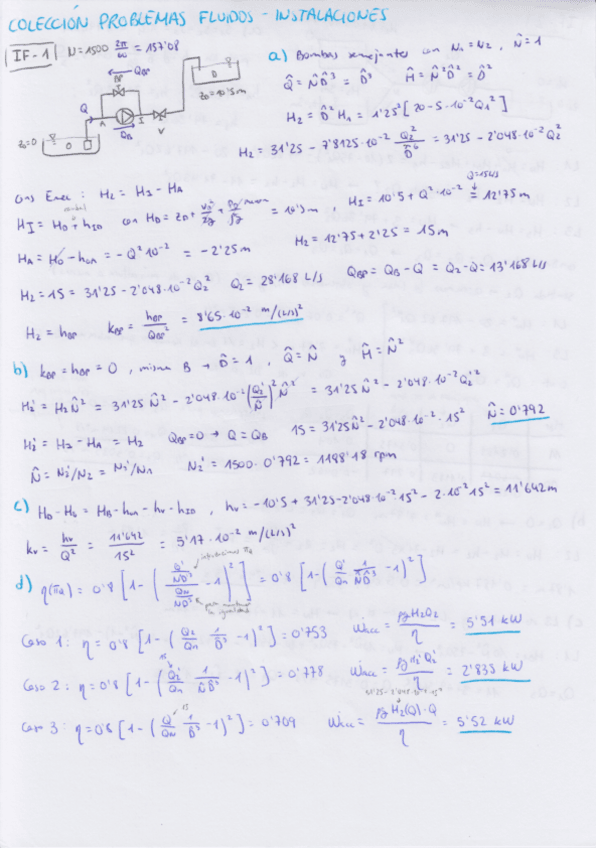 COLECCIÓN PROBLEMAS FLUIDOS - INSTALACIONES
IF-1 N=1500 2π/60 = 157'08
a) Bombas semejantes con N₁=N₂, N̂=1
Q̂ = N̂D̂³ = D̂³ Ĥ = N̂²D̂² = D̂²
H₂ = D̂² H₁ = 1'25² [20-5·10⁻² Q₁²]
H₂ = 31'25 - 7'8125·10⁻² Q₂²/D̂⁶ = 31'25 - 2'048·10⁻² Q₂²
BP Q_BP
Q A I V
Q_B
z₀=0 O
D z_D=10'5m
Cons Ener: H₂ = H_I - H_A
Q=15 L/s
H_I = H_D + h_ID con H_D = z_D + v_D²/2g + P_D/ρg = 10'5m, H_I = 10'5 + Q²·10⁻² 12'75m
H_A = H_O - h_OA = -Q²·10⁻² = -2'25m H₂ = 12'75+2'25 = 15m
H₂ = 15 = 31'25 - 2'048·10⁻² Q₂² Q₂ = 28'168 L/s Q_BP = Q_B - Q = Q₂ - Q = 13'168 L/s
H₂ = h_BP k_BP = h_BP/Q_BP² = 8'65·10⁻² m/(L/s)²
b) k_BP = h_BP = 0, misma B → D̂=1, Q̂=N̂ y Ĥ=N̂²
H₂' = H₂N̂² = 31'25 N̂² - 2'048·10⁻² (Q₂'/N̂)² N̂² = 31'25 N̂² - 2'048·10⁻² Q₂'²
H₂' = H_I - H_A = H₂ Q_BP=0 → Q=Q_B 15 = 31'25N̂² - 2'048·10⁻²·15² N̂ = 0'792
N̂ = N₂'/N₂ = N₂'/N₁ N₂' = 1500·0'792 = 1188'18 rpm
c) H_D - H_O = H_B - h_OA - h_V - h_ID, h_V = -10'5+31'25-2'048·10⁻²15² - 2·10⁻²15² = 11'642m
k_V = h_V/Q² = 11'642/15² = 5'17·10⁻² m/(L/s)²
d) η(π_Q) = 0'8 [1-(Q'/ND³ / Q_N/ND³ - 1)²] = 0'8 [1-(Q'/Q_N 1/N̂D̂³ - 1)²]
Caso 1: η = 0'8 [1-(Q₂/Q_N 1/D̂³ - 1)²] = 0'753 Ẇ_acc = ρgH₂Q₂/η = 5'51 kW
15
Caso 2: η = 0'8 [1-(Q₂'/Q_N 1/N̂D̂³ - 1)²] = 0'778 Ẇ_acc = ρgH₂'Q₂'/η = 2'833 kW
15
Caso 3: η = 0'8 [1-(Q/Q_N 1/D̂³ - 1)²] = 0'709 Ẇ_acc = ρgH₂(Q)·Q/η = 5'52 kW